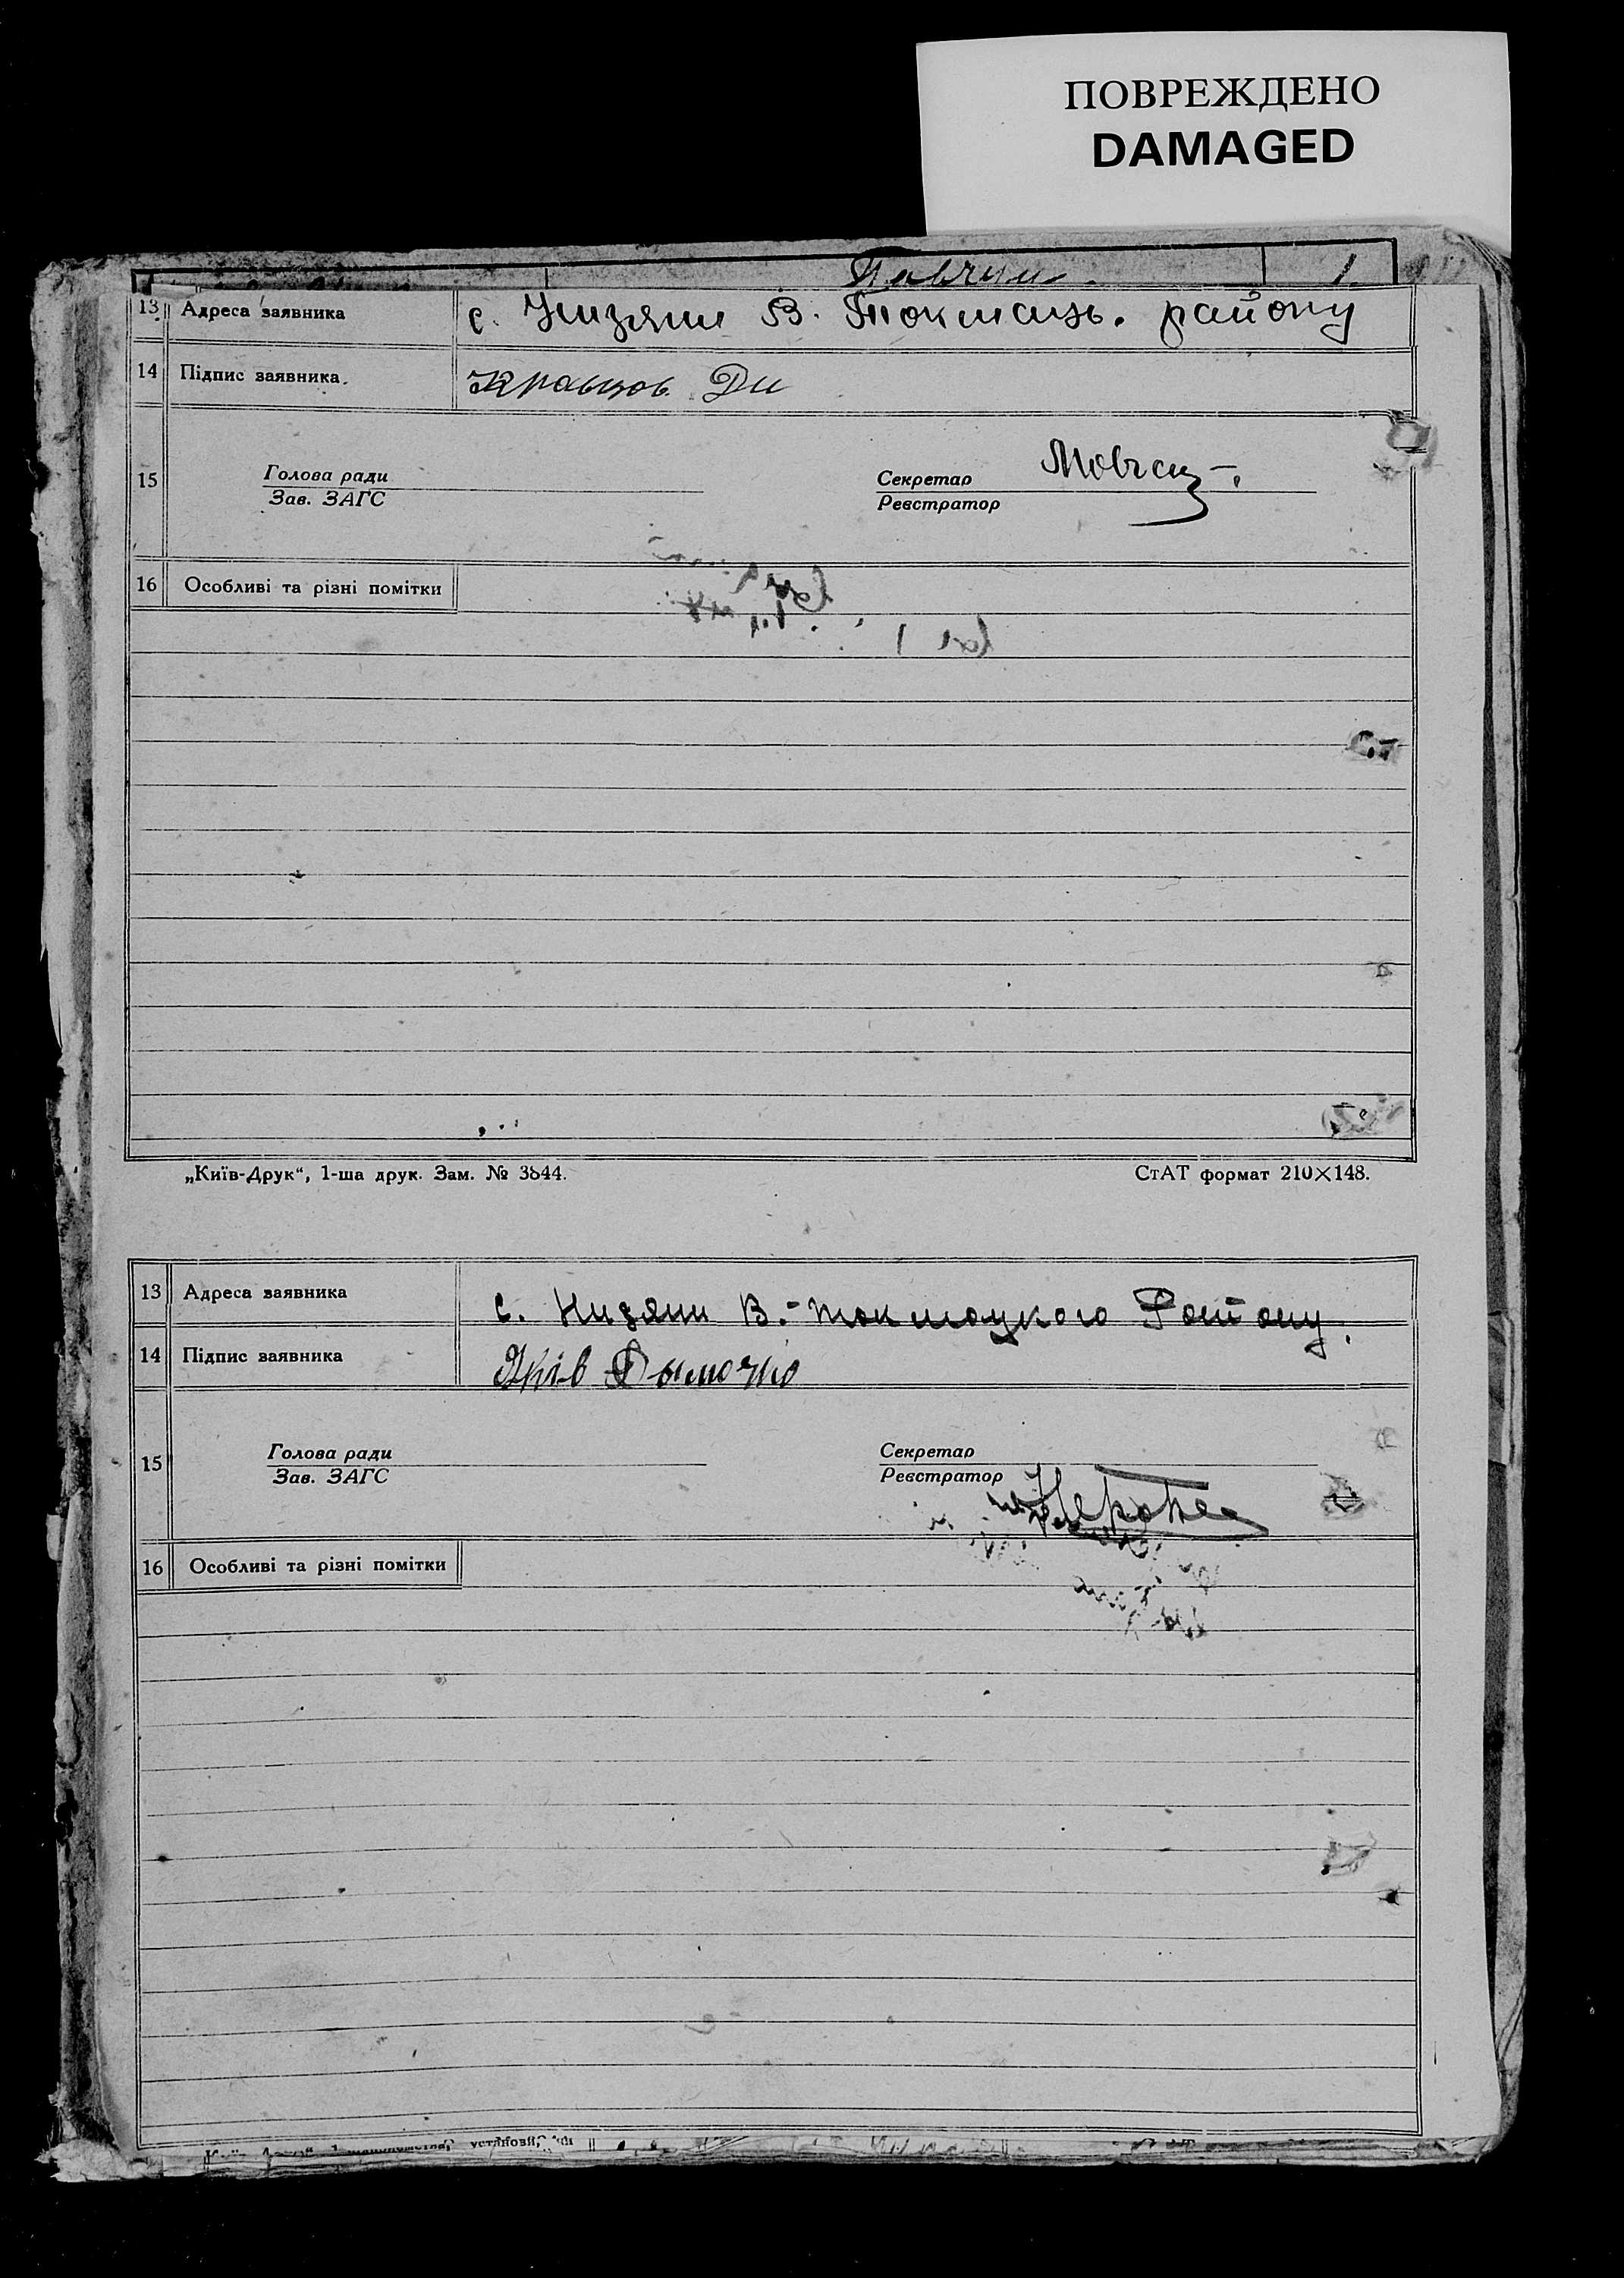 ПОВРЕЖДЕНО
DAMAGED
13 Адреса заявника с. Низяни В. Токмацьк. району
14 Підпис заявника. Кравцов Ди
15 Голова ради Секретар Мовчан
Зав. ЗАГС Реєстратор
16 Особливі та різні помітки
„Київ-Друк“, 1-ша друк. Зам. № 3844. СтАТ формат 210×148.
13 Адреса заявника с. Низяни В.-токмацкого Району.
14 Підпис заявника Яків
15 Голова ради Секретар
Зав. ЗАГС Реєстратор
16 Особливі та різні помітки